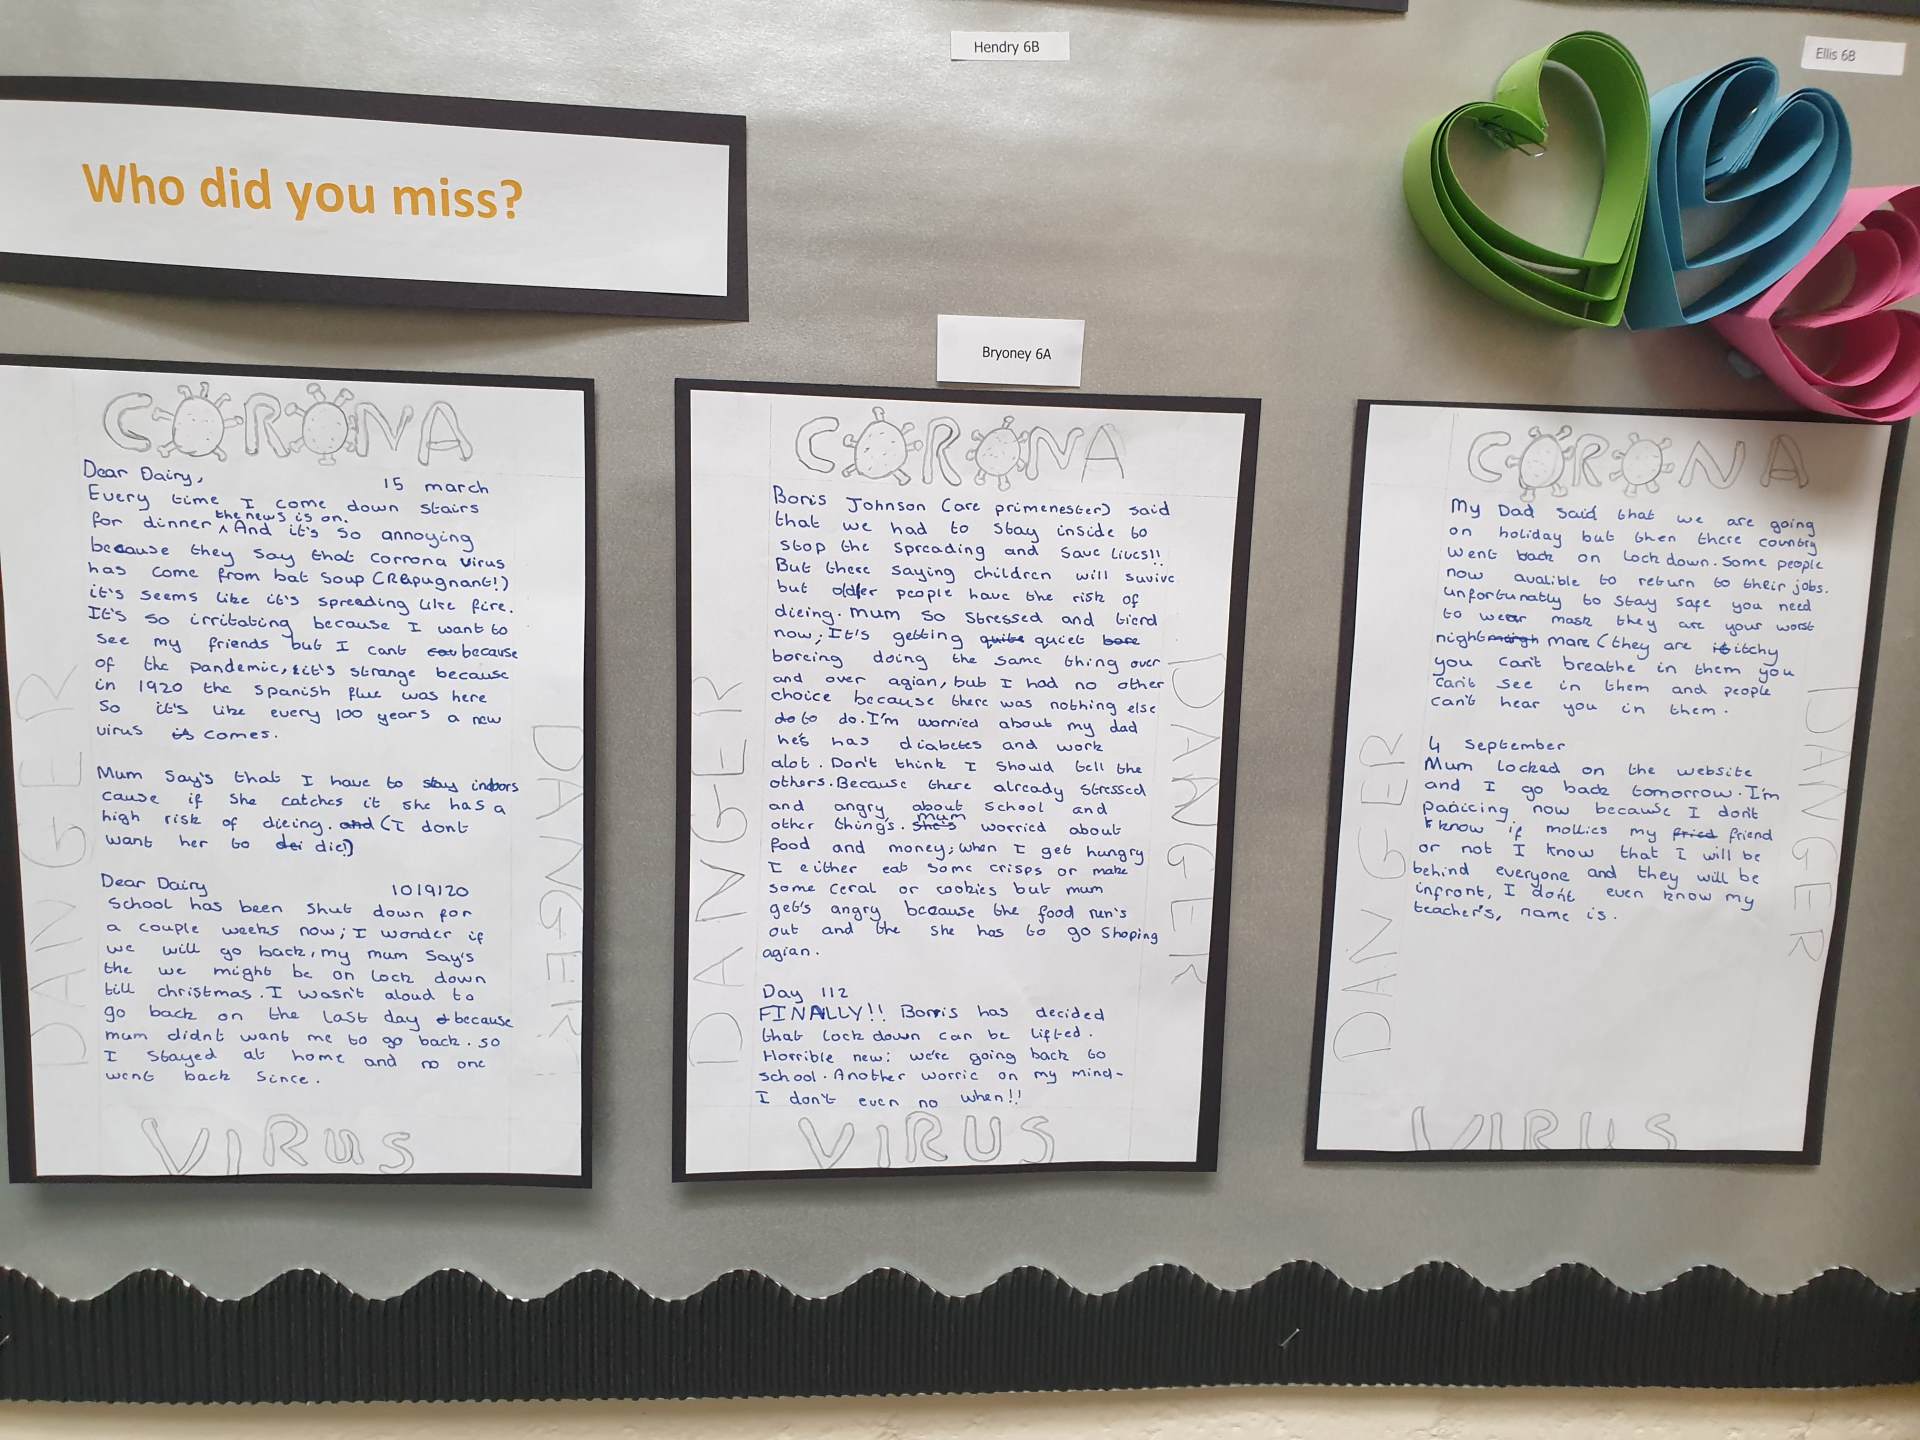 Hendry 6B
Ellis 6B
Who did you miss?
Bryoney 6A
CORONA
Dear Dairy,
15 march
Every time I come down stairs
for dinner ^ the news is on. And it's so annoying
because they say that corrona virus
has come from bat soup (REpugnant!)
it's seems like it's spreading like fire.
It's so irritating because I want to
see my friends but I cant because
of the pandemic, it's strange because
in 1920 the spanish flue was here
So it's like every 100 years a new
virus is comes.
Mum say's that I have to stay indoors
cause if she catches it she has a
high risk of dieing. and (I dont
want her to dei die!)
Dear Dairy
10/9/20
School has been shut down for
a couple weeks now; I wonder if
we will go back, my mum say's
the we might be on lock down
till christmas. I wasn't aloud to
go back on the last day because
mum didnt want me to go back. so
I stayed at home and no one
went back since.
DANGER
DANGER
VIRUS
CORONA
Boris Johnson (are primenester) said
that we had to stay inside to
stop the spreading and save lives!!
But there saying children will suvive
but older people have the risk of
dieing. Mum so stressed and tierd
now; It's getting quite quiet bore
boreing doing the same thing over
and over agian, but I had no other
choice because there was nothing else
do to do. I'm worried about my dad
he's has diabetes and work
alot. Don't think I should tell the
others. Because there already stressed
and angry about school and
other thing's. She's mum worried about
food and money; when I get hungry
I either eat some crisps or make
some ceral or cookies but mum
get's angry because the food run's
out and the she has to go shoping
agian.
Day 112
FINALLY!! Borris has decided
that lock down can be lifted.
Horrible new: we're going back to
school. Another worrie on my mind-
I don't even no when!!
DANGER
DANGER
VIRUS
CORONA
My Dad said that we are going
on holiday but then there country
went back on lock down. Some people
now avalible to return to their jobs.
unfortunatly to stay safe you need
to wear mask they are your worst
night mare (they are itchy
you can't breathe in them you
can't see in them and people
can't hear you in them.
4 September
Mum locked on the website
and I go back tomorrow. I'm
panicing now because I don't
know if mollies my fried friend
or not I know that I will be
behind everyone and they will be
infront, I don't even know my
teacher's, name is.
DANGER
DANGER
VIRUS